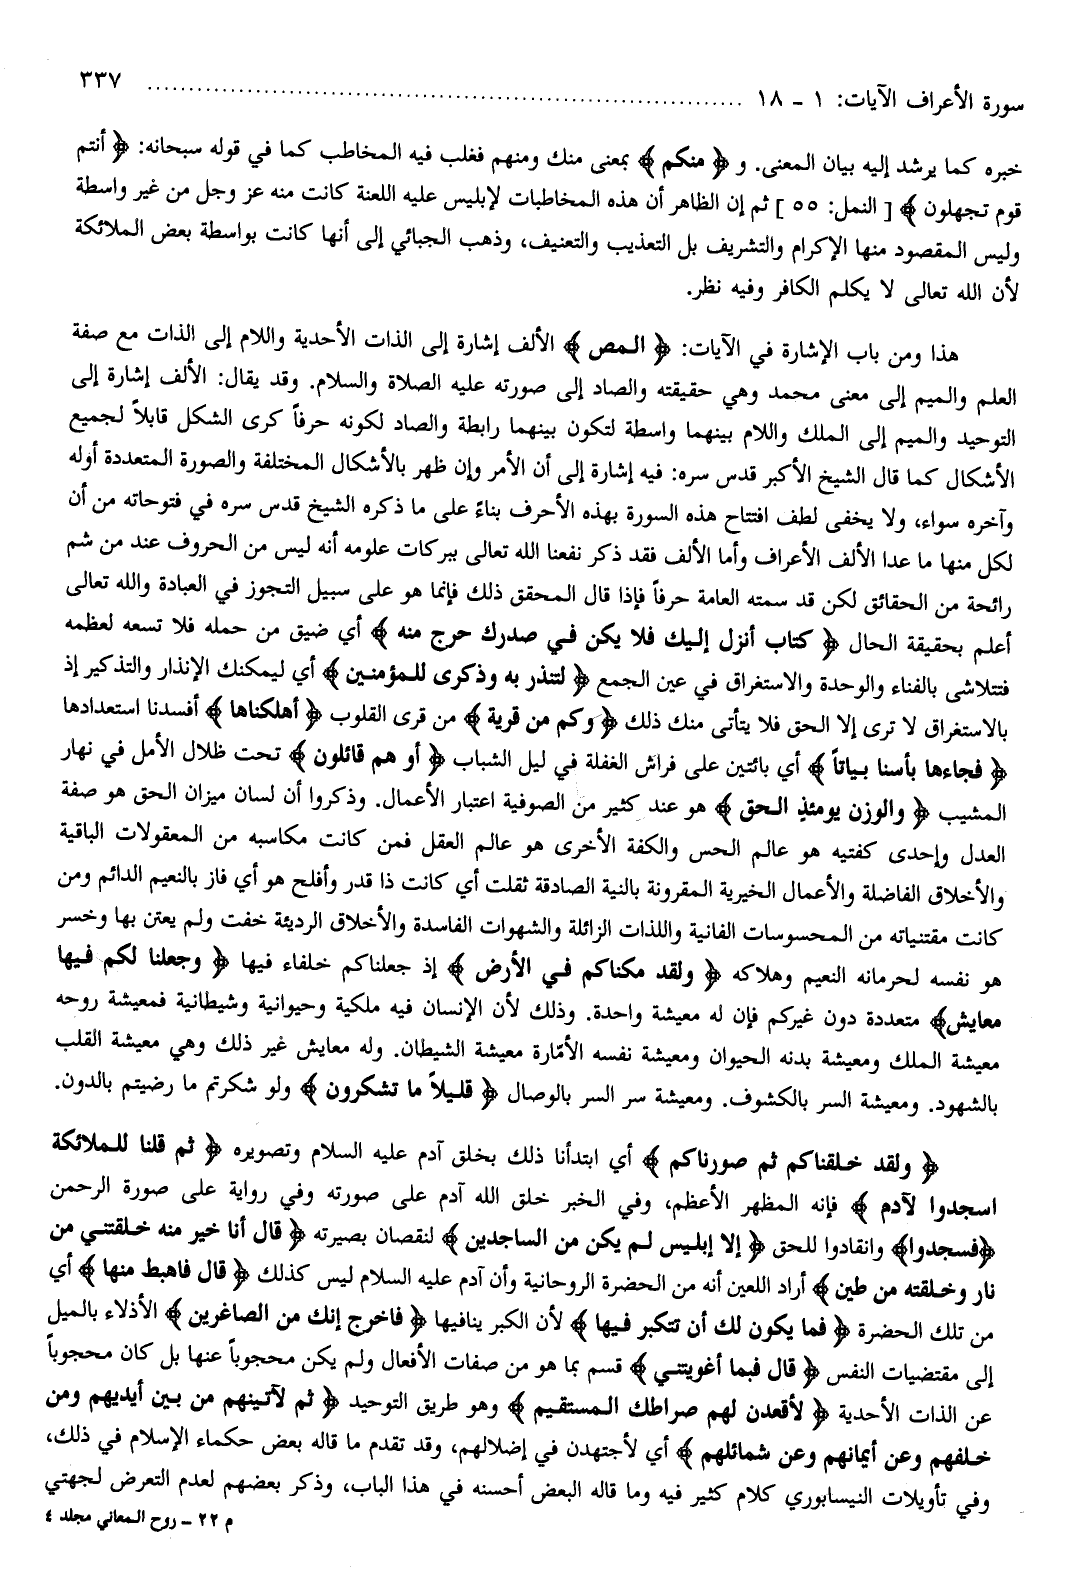 سورة الأعراف الآيات: ١ - ١٨ ........................................ ٣٣٧
خبره كما يرشد إليه بيان المعنى. و ﴿ منكم ﴾ بمعنى منك ومنهم فغلب فيه المخاطب كما في قوله سبحانه: ﴿ أنتم
قوم تجهلون ﴾ [ النمل: ٥٥ ] ثم إن الظاهر أن هذه المخاطبات لإبليس عليه اللعنة كانت منه عز وجل من غير واسطة
وليس المقصود منها الإكرام والتشريف بل التعذيب والتعنيف، وذهب الجبائي إلى أنها كانت بواسطة بعض الملائكة
لأن الله تعالى لا يكلم الكافر وفيه نظر.
هذا ومن باب الإشارة في الآيات: ﴿ المص ﴾ الألف إشارة إلى الذات الأحدية واللام إلى الذات مع صفة
العلم والميم إلى معنى محمد وهي حقيقته والصاد إلى صورته عليه الصلاة والسلام. وقد يقال: الألف إشارة إلى
التوحيد والميم إلى الملك واللام بينهما واسطة لتكون بينهما رابطة والصاد لكونه حرفاً كرى الشكل قابلاً لجميع
الأشكال كما قال الشيخ الأكبر قدس سره: فيه إشارة إلى أن الأمر وإن ظهر بالأشكال المختلفة والصورة المتعددة أوله
وآخره سواء، ولا يخفى لطف افتتاح هذه السورة بهذه الأحرف بناءً على ما ذكره الشيخ قدس سره في فتوحاته من أن
لكل منها ما عدا الألف الأعراف وأما الألف فقد ذكر نفعنا الله تعالى ببركات علومه أنه ليس من الحروف عند من شم
رائحة من الحقائق لكن قد سمته العامة حرفاً فإذا قال المحقق ذلك فإنما هو على سبيل التجوز في العبادة والله تعالى
أعلم بحقيقة الحال ﴿ كتاب أنزل إليك فلا يكن في صدرك حرج منه ﴾ أي ضيق من حمله فلا تسعه لعظمه
فتتلاشى بالفناء والوحدة والاستغراق في عين الجمع ﴿ لتنذر به وذكرى للمؤمنين ﴾ أي ليمكنك الإنذار والتذكير إذ
بالاستغراق لا ترى إلا الحق فلا يتأتى منك ذلك ﴿ وكم من قرية ﴾ من قرى القلوب ﴿ أهلكناها ﴾ أفسدنا استعدادها
﴿ فجاءها بأسنا بياتاً ﴾ أي بائتين على فراش الغفلة في ليل الشباب ﴿ أو هم قائلون ﴾ تحت ظلال الأمل في نهار
المشيب ﴿ والوزن يومئذٍ الحق ﴾ هو عند كثير من الصوفية اعتبار الأعمال. وذكروا أن لسان ميزان الحق هو صفة
العدل وإحدى كفتيه هو عالم الحس والكفة الأخرى هو عالم العقل فمن كانت مكاسبه من المعقولات الباقية
والأخلاق الفاضلة والأعمال الخيرية المقرونة بالنية الصادقة ثقلت أي كانت ذا قدر وأفلح هو أي فاز بالنعيم الدائم ومن
كانت مقتنياته من المحسوسات الفانية واللذات الزائلة والشهوات الفاسدة والأخلاق الرديئة خفت ولم يعتن بها وخسر
هو نفسه لحرمانه النعيم وهلاكه ﴿ ولقد مكناكم في الأرض ﴾ إذ جعلناكم خلفاء فيها ﴿ وجعلنا لكم فيها
معايش﴾ متعددة دون غيركم فإن له معيشة واحدة. وذلك لأن الإنسان فيه ملكية وحيوانية وشيطانية فمعيشة روحه
معيشة الملك ومعيشة بدنه الحيوان ومعيشة نفسه الأمّارة معيشة الشيطان. وله معايش غير ذلك وهي معيشة القلب
بالشهود. ومعيشة السر بالكشوف. ومعيشة سر السر بالوصال ﴿ قليلاً ما تشكرون ﴾ ولو شكرتم ما رضيتم بالدون.
﴿ ولقد خلقناكم ثم صورناكم ﴾ أي ابتدأنا ذلك بخلق آدم عليه السلام وتصويره ﴿ ثم قلنا للملائكة
اسجدوا لآدم ﴾ فإنه المظهر الأعظم، وفي الخبر خلق الله آدم على صورته وفي رواية على صورة الرحمن
﴿فسجدوا﴾ وانقادوا للحق ﴿ إلا إبليس لم يكن من الساجدين ﴾ لنقصان بصيرته ﴿ قال أنا خير منه خلقتني من
نار وخلقته من طين ﴾ أراد اللعين أنه من الحضرة الروحانية وأن آدم عليه السلام ليس كذلك ﴿ قال فاهبط منها ﴾ أي
من تلك الحضرة ﴿ فما يكون لك أن تتكبر فيها ﴾ لأن الكبر ينافيها ﴿ فاخرج إنك من الصاغرين ﴾ الأذلاء بالميل
إلى مقتضيات النفس ﴿ قال فبما أغويتني ﴾ قسم بما هو من صفات الأفعال ولم يكن محجوباً عنها بل كان محجوباً
عن الذات الأحدية ﴿ لأقعدن لهم صراطك المستقيم ﴾ وهو طريق التوحيد ﴿ ثم لآتينهم من بين أيديهم ومن
خلفهم وعن أيمانهم وعن شمائلهم ﴾ أي لأجتهدن في إضلالهم، وقد تقدم ما قاله بعض حكماء الإسلام في ذلك،
وفي تأويلات النيسابوري كلام كثير فيه وما قاله البعض أحسنه في هذا الباب، وذكر بعضهم لعدم التعرض لجهتي
م ٢٢ - روح المعاني مجلد ٤